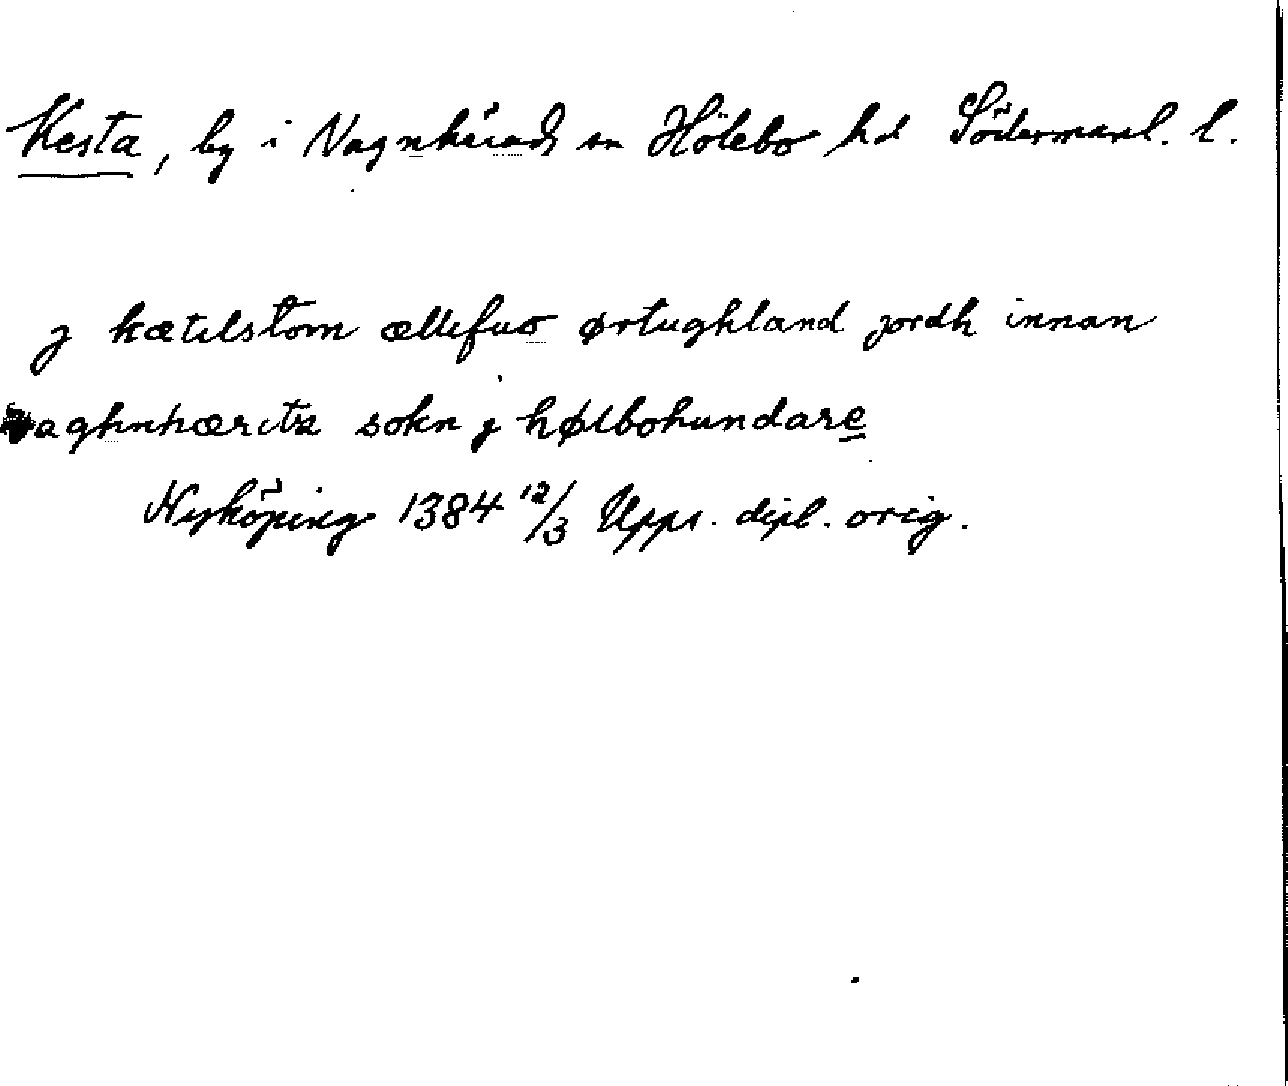 Kesta, by i Vagnhärads sn Hölebo hd Södermanl. l.
j kætilstom ællefuo ørtughland jordh innan
vaghnhæritz sokn j hølbohundare
Nyköping 1384 12/3 Upps. dipl. orig.